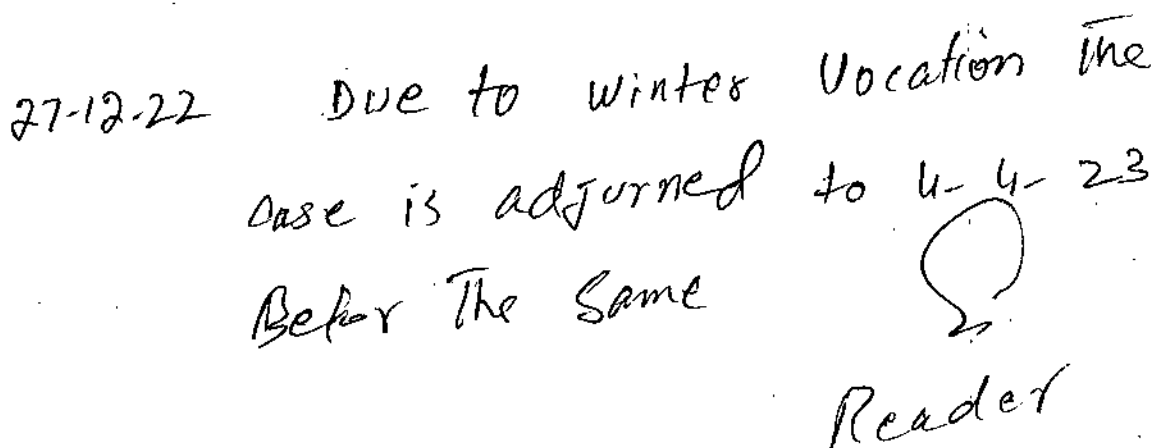 27-12-22 Due to winter Vocation The
case is adjurned to 4-4-23
Befor The Same
Reader